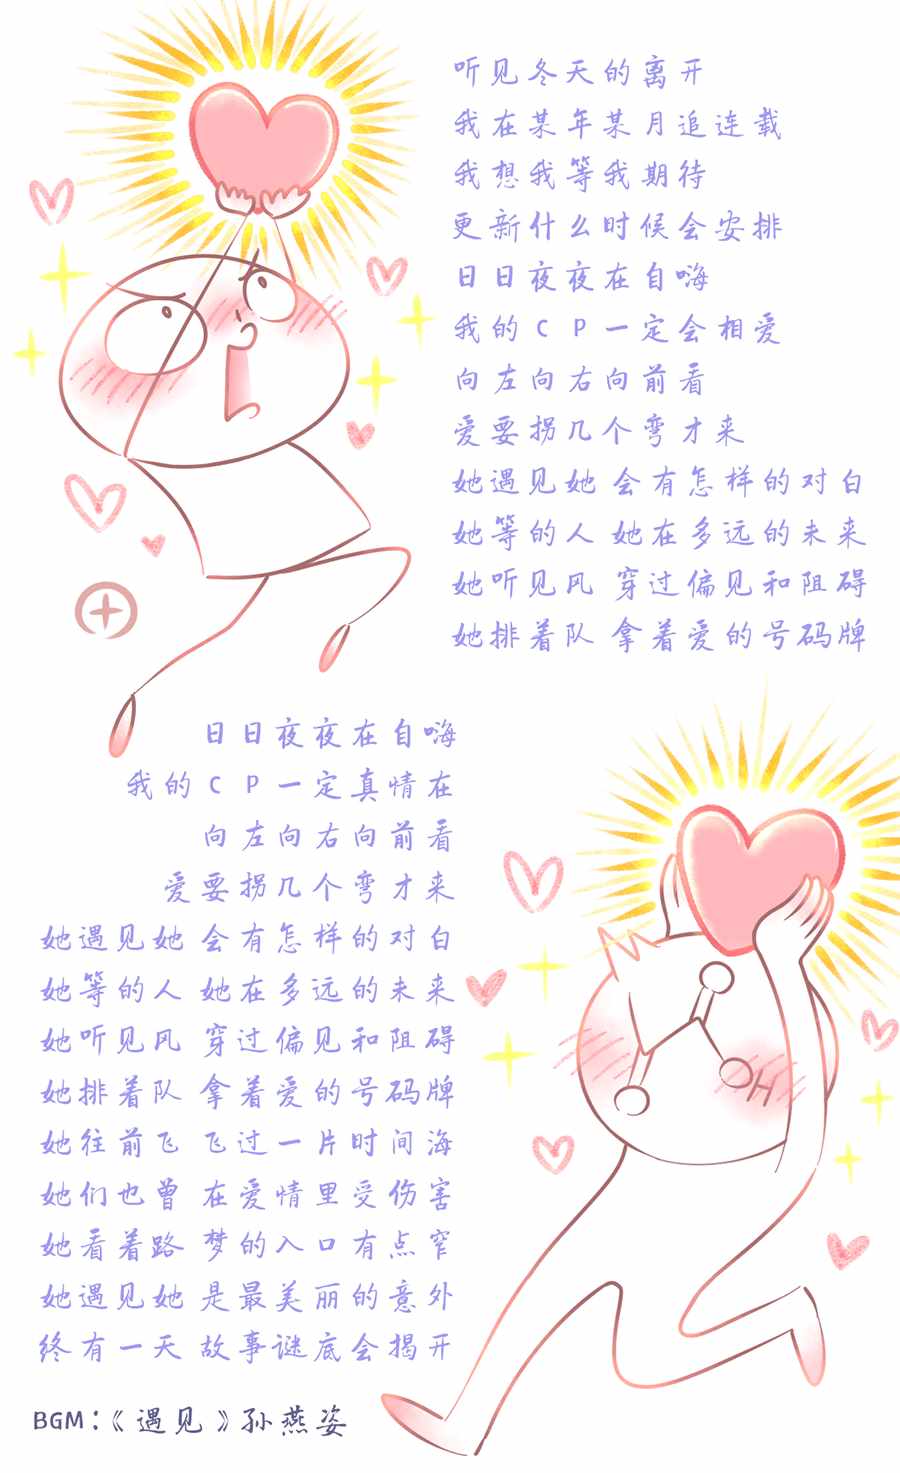 听见冬天的离开
我在某年某月追连载
我想我等我期待
更新什么时候会安排
日日夜夜在自嗨
我的CP一定会相爱
向左向右向前看
爱要拐几个弯才来
她遇见她 会有怎样的对白
她等的人 她在多远的未来
她听见风 穿过偏见和阻碍
她排着队 拿着爱的号码牌
日日夜夜在自嗨
我的CP一定真情在
向左向右向前看
爱要拐几个弯才来
她遇见她 会有怎样的对白
她等的人 她在多远的未来
她听见风 穿过偏见和阻碍
她排着队 拿着爱的号码牌
她往前飞 飞过一片时间海
她们也曾 在爱情里受伤害
她看着路 梦的入口有点窄
她遇见她 是最美丽的意外
终有一天 故事谜底会揭开
OH
BGM:《遇见》孙燕姿